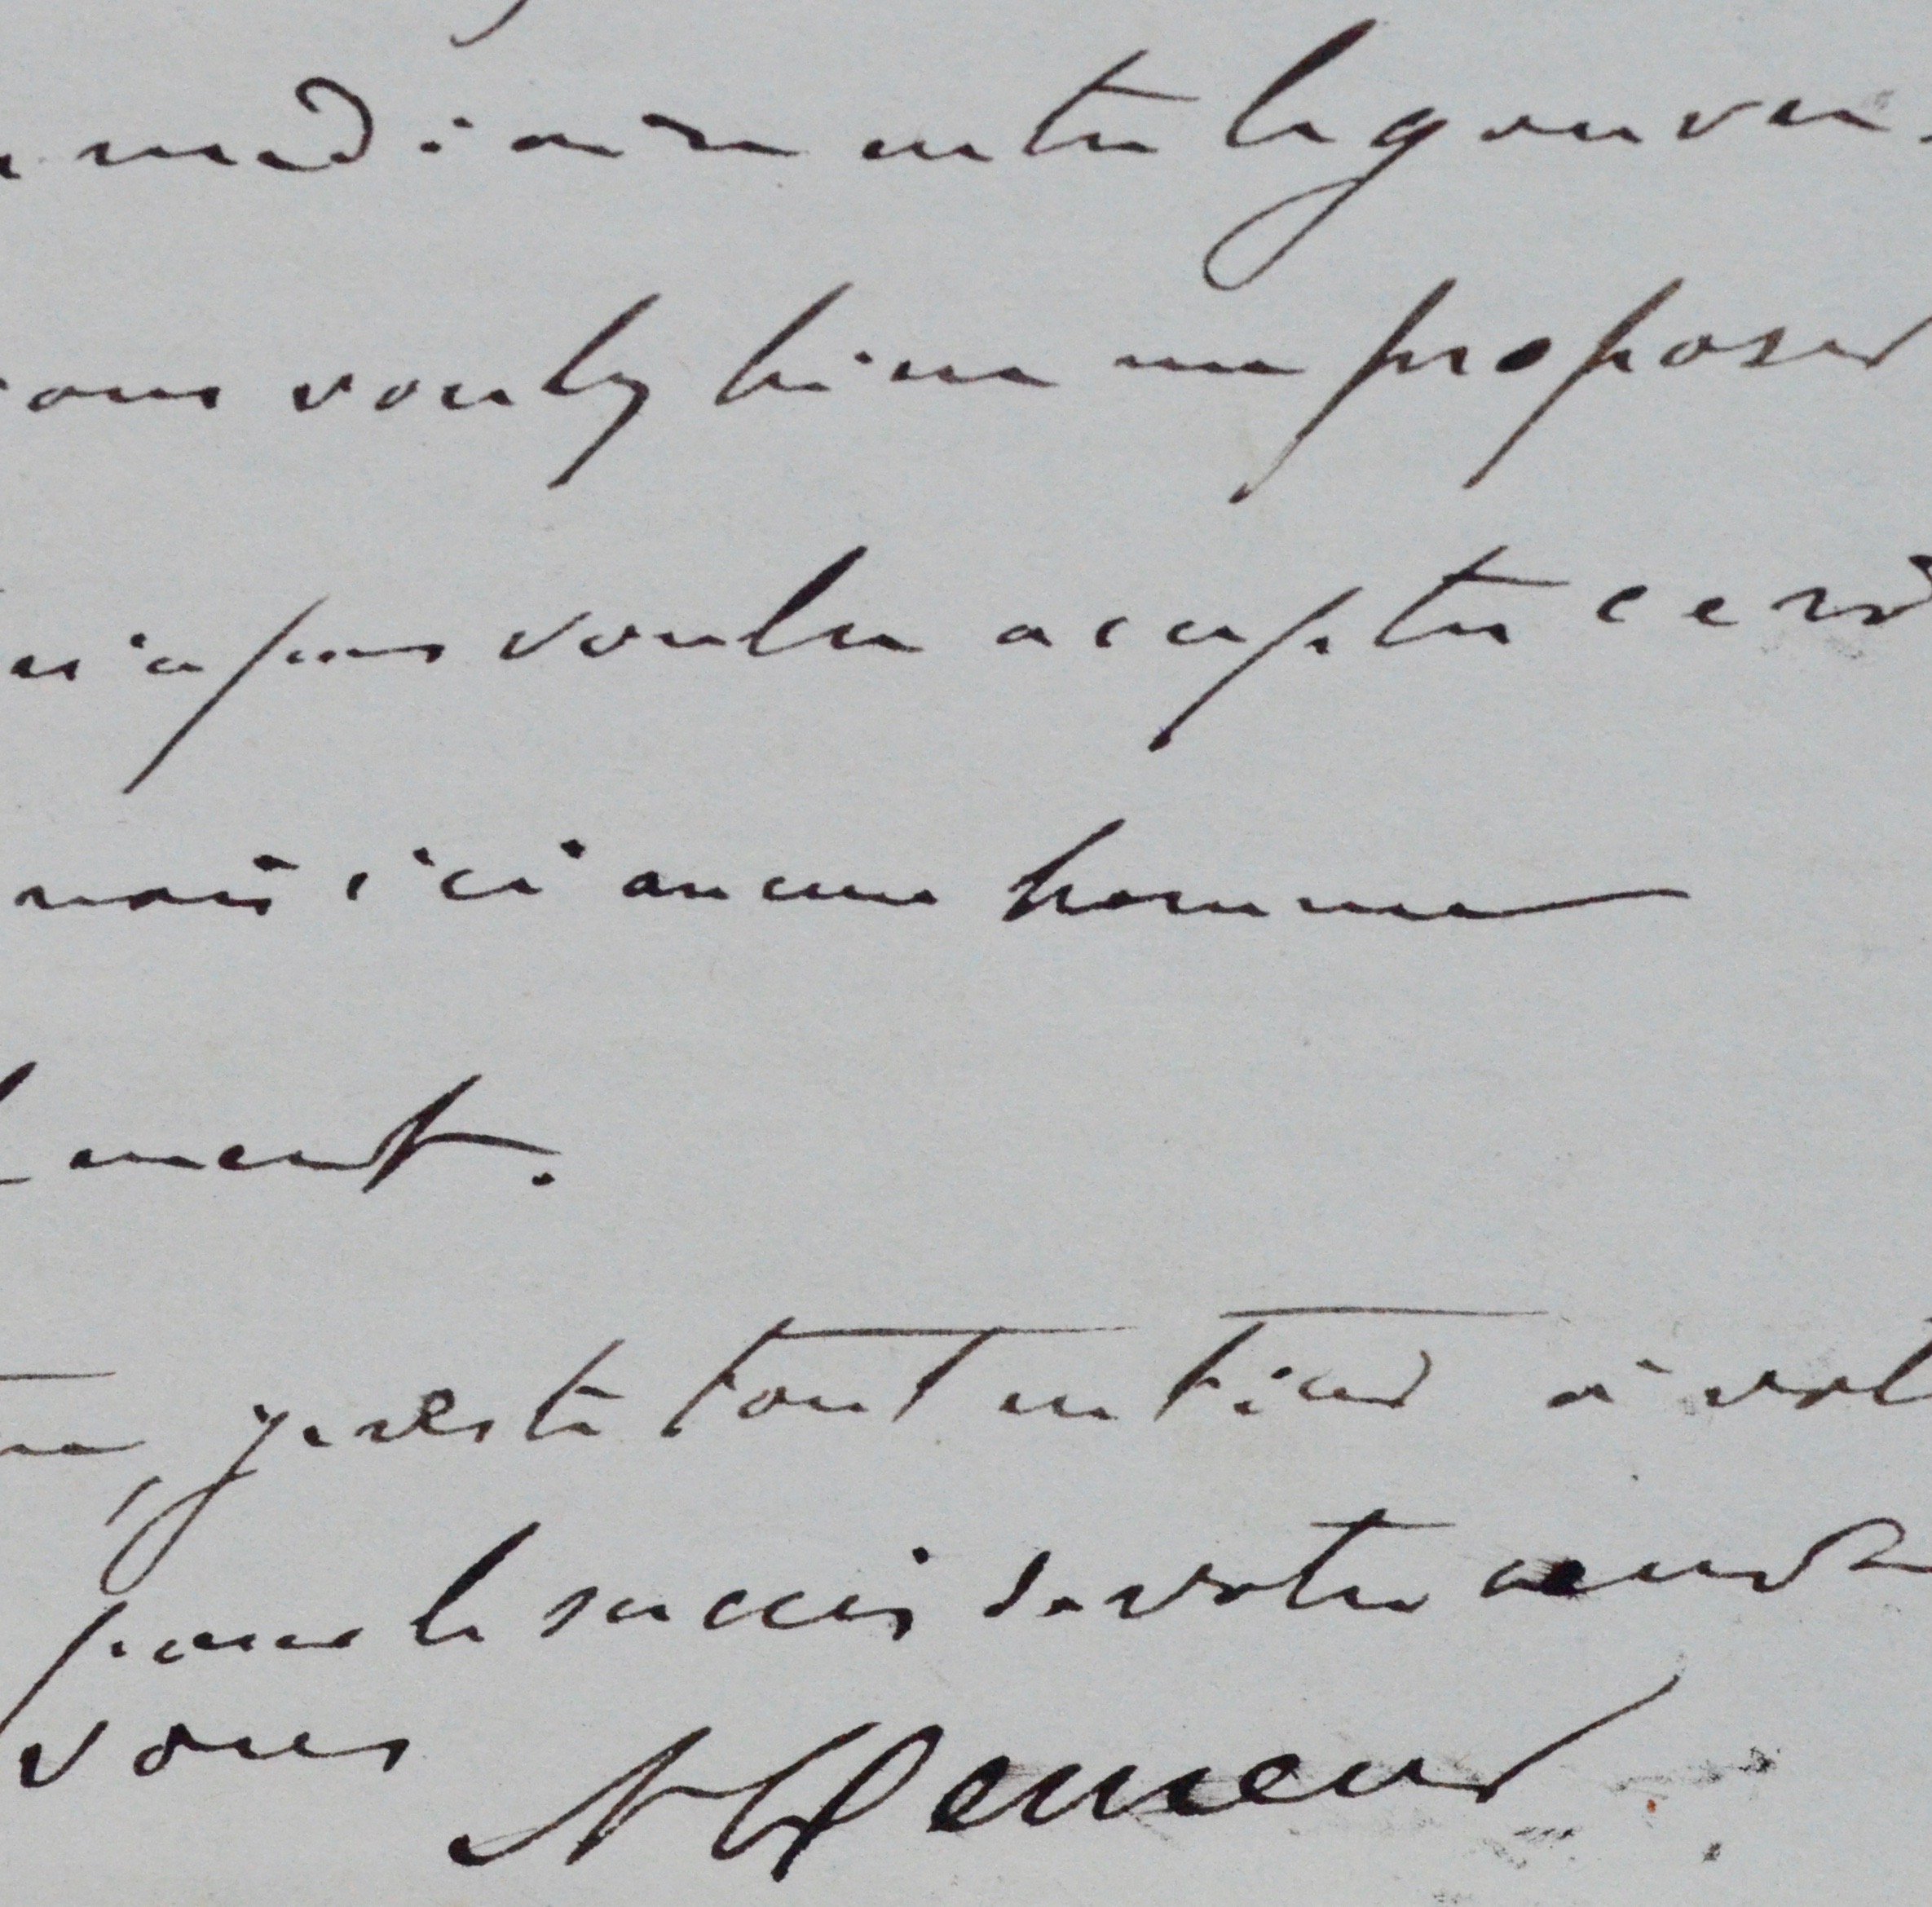 médiaire entre le gouver
vous voulez bien me proposer
n'a pas voulu accepter ce rô
nais ici aucun homme
ment.
je reste tout entier à vot
pour le succès de votre œuvre
vous